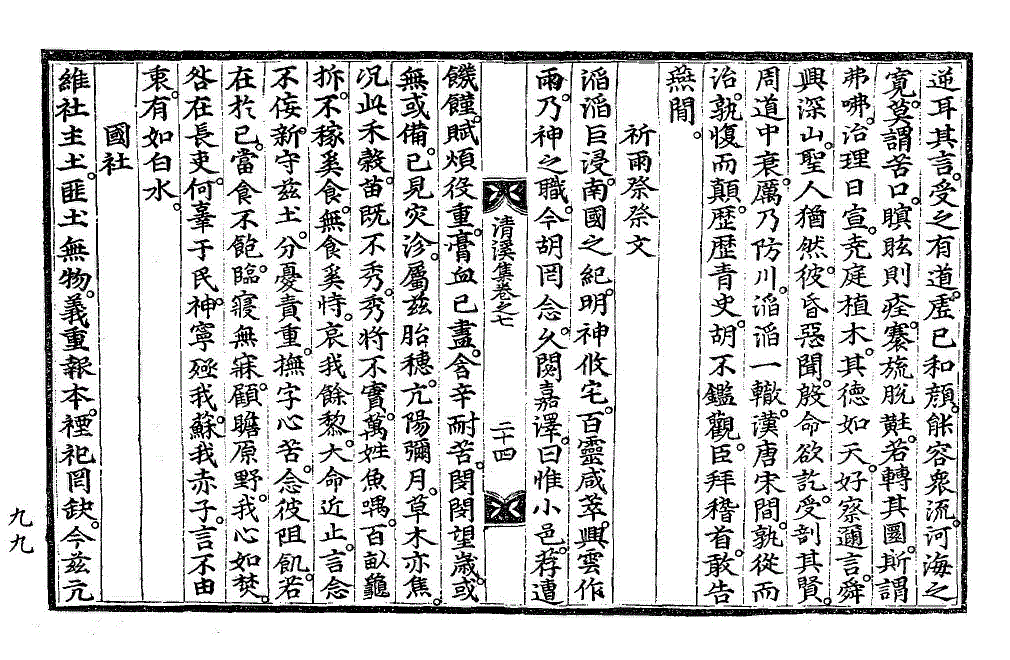 逆耳其言。受之有道。虛已和顔。能容衆流。河海之
寬。莫謂苦口。瞑眩則痊。褰旒脫黈。若轉其圜。斯謂
弗咈。治理日宣。尭庭植木。其德如天。好察邇言。舜
興深山。聖人猶然。彼昏惡聞。殷命欲訖。受剖其賢。
周道中衰。厲乃防川。滔滔一轍。漢唐宋間。孰從而
治。孰愎而顛。歷歷青史。胡不鑑觀。臣拜稽首。敢告
燕間。
祈雨祭祭文
滔滔巨浸。南國之紀。明神攸宅。百靈咸萃。興雲作
雨。乃神之職。今胡罔念。久閼嘉澤。曰惟小邑。荐遭
清溪集卷之七
二十四
饑饉。賦煩役重。膏血已盡。含辛耐苦。閔閔望歲。或
無或備。已見灾沴。屬茲胎穗。亢陽彌月。草木亦焦。
况此禾糓。苗旣不秀。秀將不實。萬姓魚喁。百畝龜
拆。不稼奚食。無食奚恃。哀我餘黎。大命近止。言念
不侫。新守茲土。分憂責重。撫字心苦。念彼阻飢。若
在於已。當食不飽。臨寢無寐。顧瞻原野。我心如焚。
咎在長吏。何辜于民。神寧殛我。蘇我赤子。言不由
衷。有如白水。
國社
維社主土。匪土無物。義重報本。禋祀罔缺。今茲元
九九